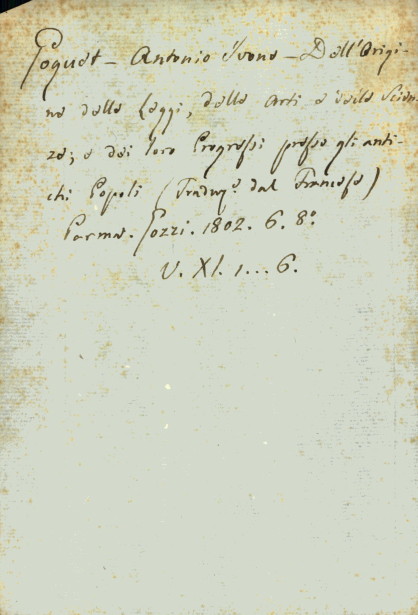 Goguet - Antonio Ivone - Dell'Origi-
ne delle Leggi, delle Arti e delle Scien-
ze; e dei loro Progressi presso gli anti-
chi Popoli (Traduz.e dal Francese)
Parma. Gozzi. 1802. 6. 8.o
V. XI. 1... 6.